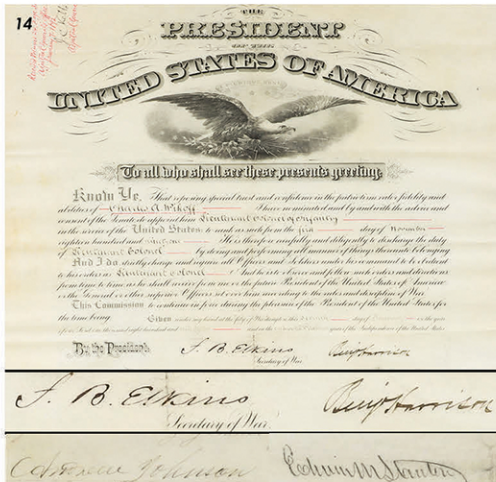 14
THE
PRESIDENT
OF THE
UNITED STATES OF AMERICA
To all who shall see these presents greeting:
Know Ye, That reposing special trust and confidence in the patriotism valor fidelity and
abilities of Charles A. Wikoff I have nominated and by and with the advice and
consent of the Senate do appoint him Lieutenant Colonel of Infantry
in the service of the United States: to rank as such from the first day of November
eighteen hundred and He is therefore carefully and diligently to discharge the duty
of Lieutenant Colonel by doing and performing all manner of things thereunto belonging
And I do strictly charge and require all Officers and Soldiers under his command to be obedient
to his orders as Lieutenant Colonel And he is to observe and follow such orders and directions
from time to time as he shall receive from me or the future President of the United States of America
or the General or other superior Officers set over him according to the rules and discipline of War.
This Commission to continue in force during the pleasure of the President of the United States for
the time being.
Given under my hand at the City of Washington this day of in the year
of our Lord one thousand eight hundred and and in the year of the Independence of the United States.
By the President,
S. B. Elkins
Benj Harrison
Secretary of War.
S. B. Elkins
Benj Harrison
Secretary of War.
Andrew Johnson
Edwin M Stanton